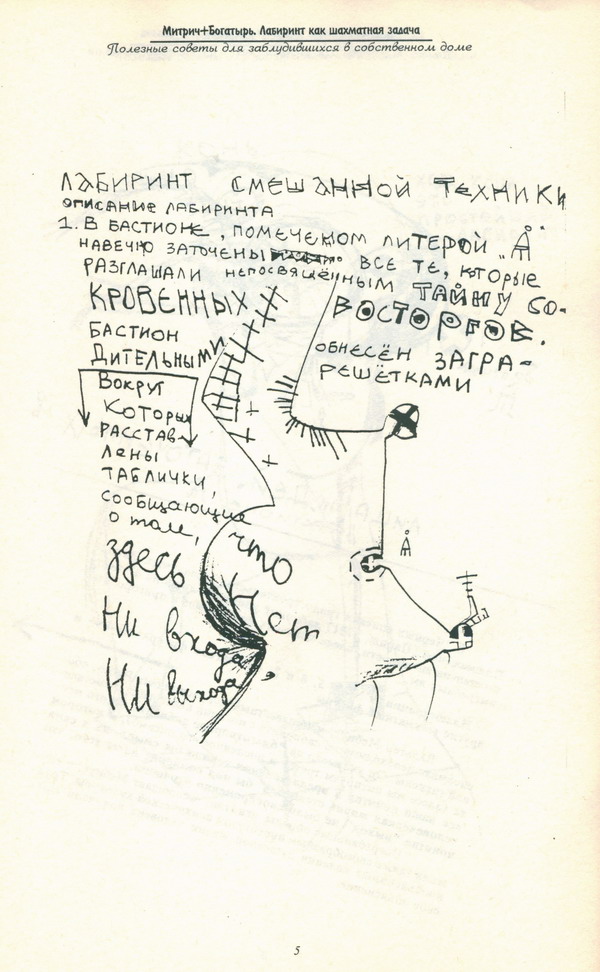 Митрич+Богатырь. Лабиринт как шахматная задача
Полезные советы для заблудившихся в собственном доме
ЛАБИРИНТ СМЕШАННОЙ ТЕХНИКИ
ОПИСАНИЕ ЛАБИРИНТА
1. В БАСТИОНЕ, ПОМЕЧЕНОМ ЛИТЕРОЙ "Å"
НАВЕЧНО ЗАТОЧЕНЫ ВСЕ ТЕ, КОТОРЫЕ
РАЗГЛАШАЛИ НЕПОСВЯЩЁННЫМ ТАЙНУ СО-
КРОВЕННЫХ ВОСТОРГОВ.
БАСТИОН ОБНЕСЁН ЗАГРА-
ДИТЕЛЬНЫМИ РЕШЁТКАМИ
Вокруг
Которых
РАССТАВ-
лены
ТАБЛИЧКИ,
сообщающие
о том, что
здесь Нет
Ни входа
Ни выхода,
Å
5